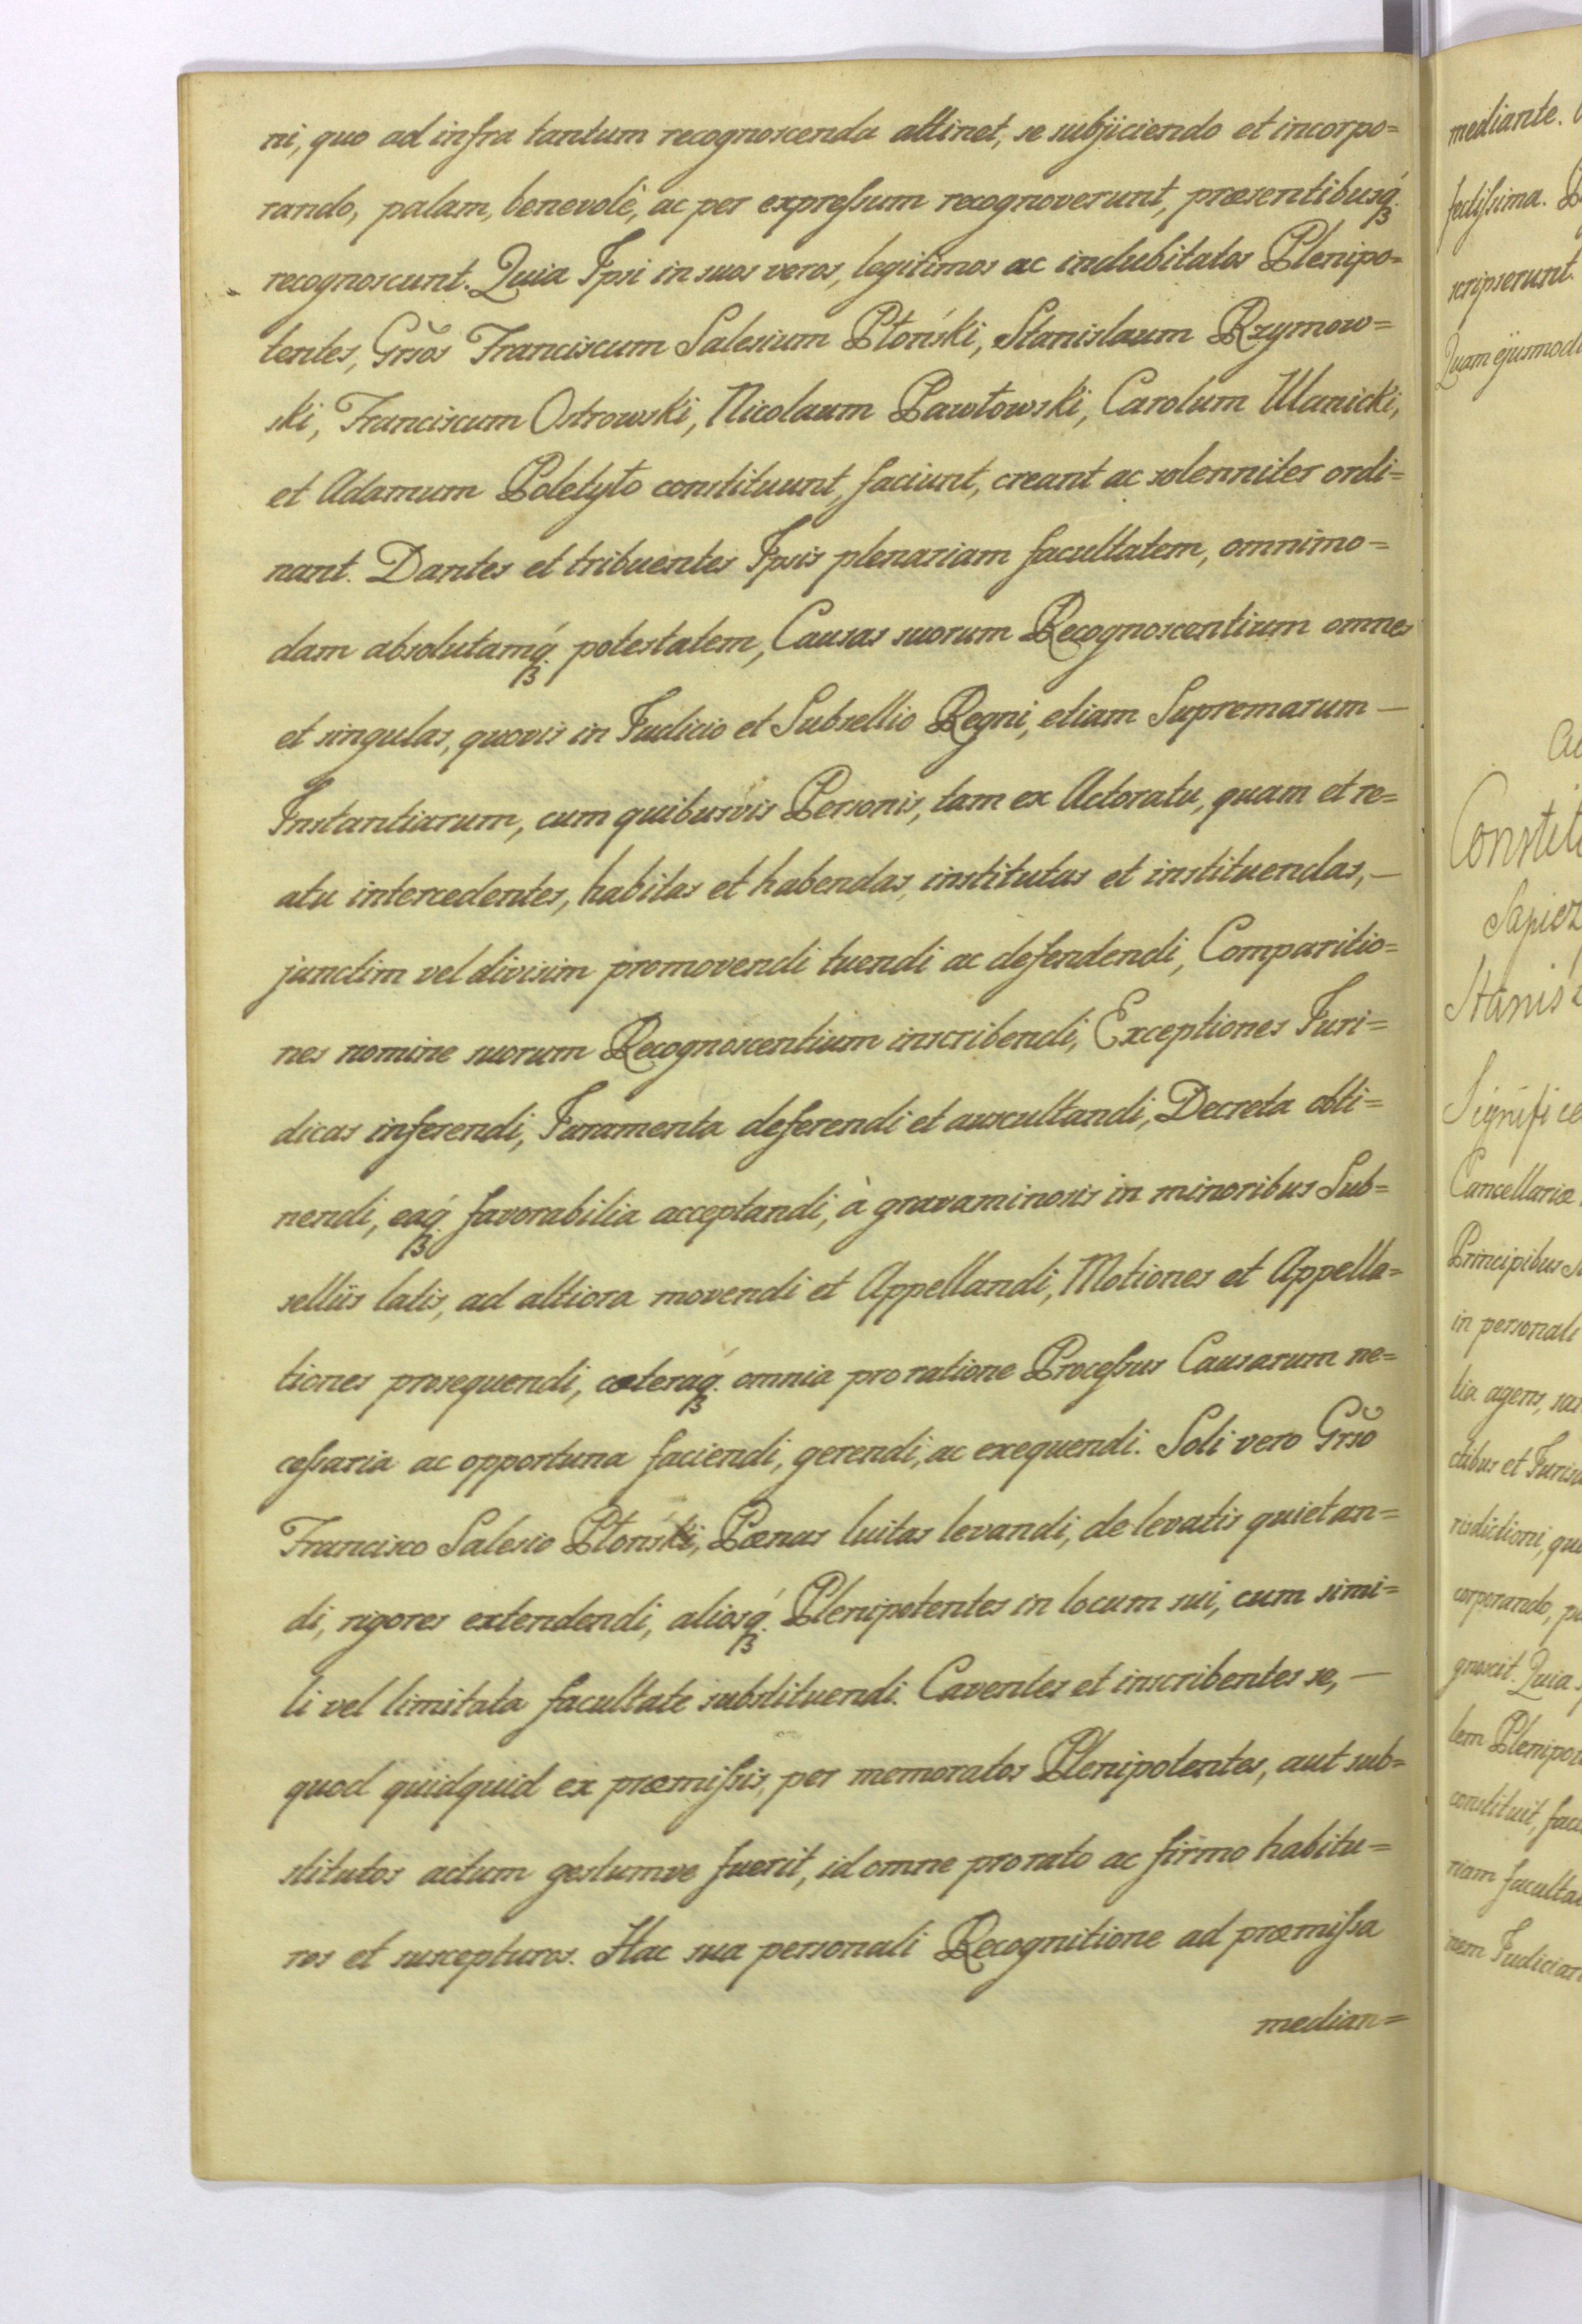 ni, quo ad infra tantum recognoscenda attinet, se subjiciendo et incorpo=
rando, palam, benevolè, ac per expreſsum recognoverunt, præsentibusq́ꝫ
recognoscunt. Quia Ipsi in suos veros, legitimos ac indubitatos Plenipo=
tentes, Grsos Franciscum Salesium Płoński, Stanislaum Rzymow=
ski, Franciscum Ostrowski, Nicolaum Pawłowski, Carolum Ulanicki,
et Adamum Poletyło constituunt, faciunt, creant ac solenniter ordi=
nant. Dantes et tribuentes Ipsis plenariam facultatem, omnimo=
dam absolutamq́ꝫ potestatem, Causas suorum Recognoscentium omnes
et singulas, quovis in Judicio et Subsellio Regni, etiam Supremarum —
Instantiarum, cum quibusvis Personis, tam ex Actoratu, quam et re=
atu intercedentes, habitas et habendas, institutas et instituendas, —
junctim vel divisim promovendi tuendi ac defendendi, Comparitio=
nes nomine suorum Recognoscentium inscribendi, Exceptiones Juri=
dicas inferendi, Juramenta deferendi et auscultandi, Decreta obti=
nendi, eaq́ꝫ favorabilia acceptandi, à gravaminosis in minoribus Sub=
selliis latis, ad altiora movendi et Appellandi, Motiones et Appella=
tiones prosequendi, cæteraq́ꝫ omnia pro ratione Proceſsus Causarum ne=
ceſsaria ac opportuna faciendi, gerendi, ac exequendi. Soli vero Grso
Francisco Salesio Płoński, Pœnas luitas levandi, de levatis quietan=
di, rigores extendendi, aliosq́ꝫ Plenipotentes in locum sui, cum simi=
li vel limitata facultate substituendi. Caventes et inscribentes se, —
quod quidquid ex præmiſsis, per memoratos Plenipotentes, aut sub=
stitutos actum gestumve fuerit, id omne pro rato ac firmo habitu=
ros et suscepturos. Hac sua personali Recognitione ad præmiſsa
median=
mediante.
scripserunt.
Cancellariæ
Principibus
in personali